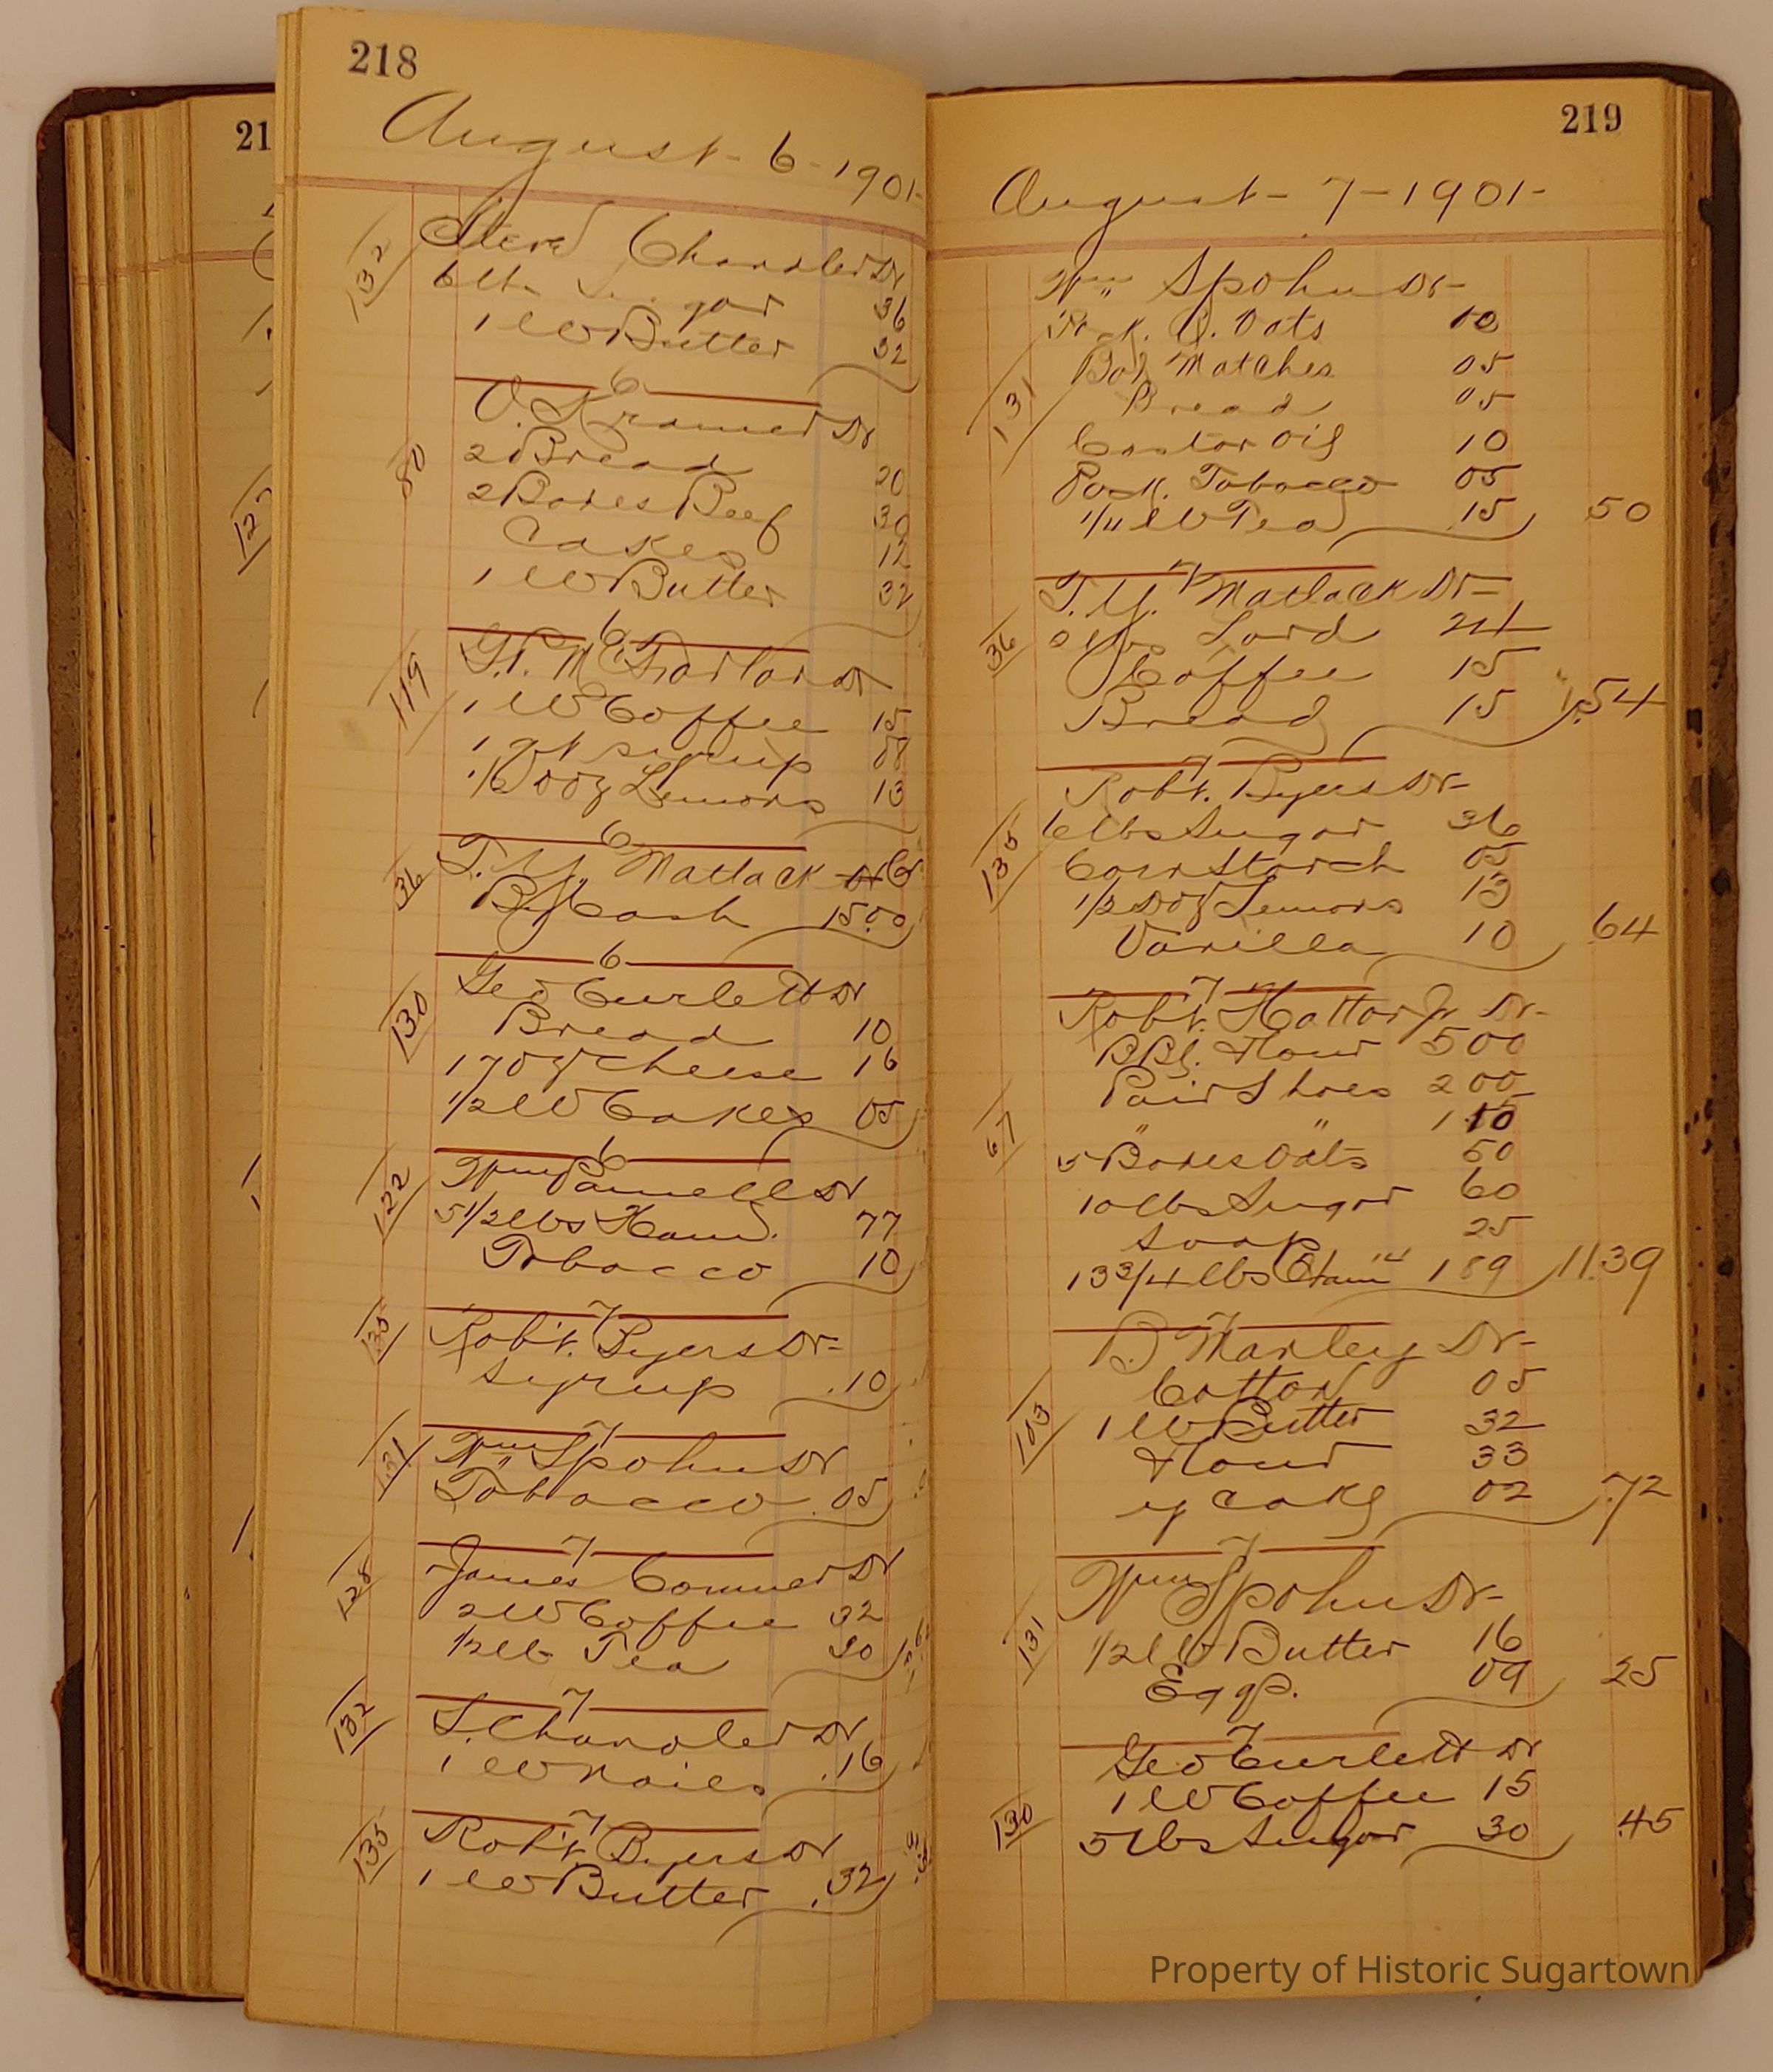 218
August - 6 - 1901 -
132
Chandler Dr
6 lb Sugar 36
1 lb Butter 32
6
80
O. Kramer Dr
2 Bread 20
2 Boxes Beef 30
Cakes 12
1 lb Butter 32
6
119
McFarlan Dr
1 lb Coffee 15
1 qt syrup 08
1/2 Doz Lemons 13
6
36
T. Y. Matlack Dr Cr
By Cash 15.00
6
130
Geo Curlett Dr
Bread 10
17 oz cheese 16
1/2 lb Cakes 05
6
122
Wm Pannell Dr
5 1/2 lbs Ham. 77
Tobacco 10
7
135
Robt. Byers Dr -
syrup .10
7
131
Wm Spohn Dr
Tobacco .05
7
128
James Conner Dr
2 lb Coffee 32
1/2 lb Tea 30
7
132
S. Chandler Dr
1 lb Nails .16
7
135
Robt. Byers Dr
1 lb Butter .32
219
August - 7 - 1901 -
131
Wm Spohn Dr -
Pack. Q. Oats 10
Box Matches 05
Bread 05
Castor Oil 10
Pack. Tobacco 05
1/4 lb Tea 15 50
7
36
T. Y. Matlack Dr -
2 lbs Lard 24
Coffee 15
Bread 15 .54
7
135
Robt. Byers Dr -
6 lbs Sugar 36
Corn Starch 05
1/2 Doz Lemons 13
Vanilla 10 64
7
67
Robt. Hatton Jr Dr -
BBl. Flour 5 00
Pair Shoes 2 00
" " 1 15
5 Boxes Oats 50
10 lbs Sugar 60
Soap 25
13 3/4 lbs Ham 14 1 89 11.39
7
103
B. Manley Dr -
Cotton 05
1 lb Butter 32
Flour 33
y cake 02 .72
7
131
Wm Spohn Dr -
1/2 lb Butter 16
Eggs. 09 25
7
130
Geo Curlett Dr
1 lb Coffee 15
5 lbs Sugar 30 .45
Property of Historic Sugartown